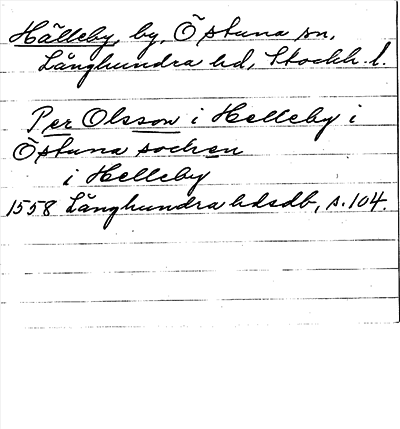 Hälleby, by, Östuna sn,
Långhundra hd, Stockh. l.
Per Olsson i Helleby i
Östuna sochen
i Helleby
1558 Långhundra hdsdb, s. 104.